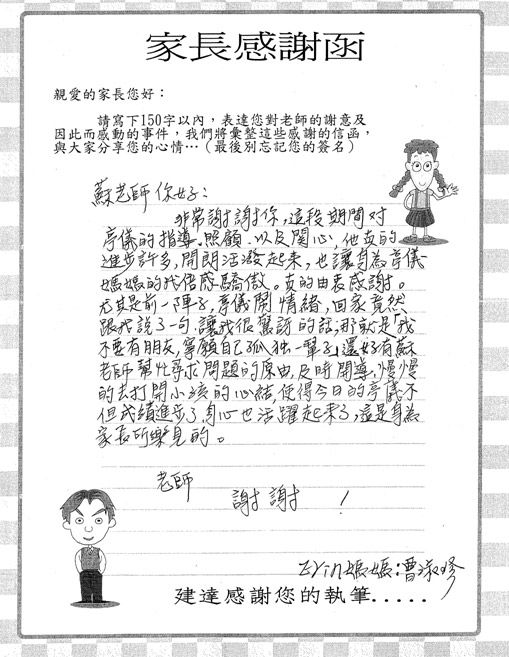 家長感謝函
親愛的家長您好：
請寫下150字以內，表達您對老師的謝意及
因此而感動的事件，我們將彙整這些感謝的信函，
與大家分享您的心情…（最後別忘記您的簽名）
蘇老師 你好：
非常謝謝你，這段期間對
亭儀的指導、照顧、以及関心，他真的
進步許多，開朗活潑起來，也讓身為亭儀
媽媽的我倍感驕傲。真的由衷感謝。
尤其是前一陣子，亭儀鬧情緒，回家竟然
跟我說了一句，讓我很驚訝的話；那就是「我
不要有朋友，寧願自己孤獨一輩子」還好有蘇
老師幫忙尋求問題的原由，及時開導，慢慢
的去打開小孩的心結，使得今日的亭儀不
但成績進步了，身心也活躍起來了，這是身為
家長所樂見的。
老師
謝謝！
Erin媽媽：曹淑
建達感謝您的執筆.....